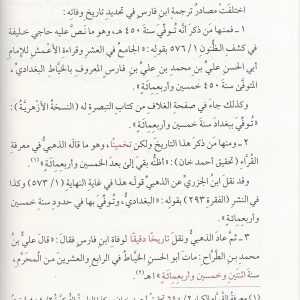 اختلفَتْ مصادرُ ترجمةِ ابنِ فارسٍ في تحديدِ تاريخِ وفاتِه:
١ - فمنها مَن ذكرَ أنَّه تُوفِّيَ سنةَ ٤٥٠ هـ، وهو ما نصَّ عليه حاجي خليفة
في كشف الظُّنون ٥٧٦/١ بقولِه: «الجامعُ في العشرِ وقراءةِ الأعْمشِ للإمامِ
أبي الحسنِ عليِّ بنِ محمدِ بنِ عليِّ بنِ فارسٍ المعروفِ بالخيَّاطِ البغداديِّ،
المتوفَّى سنةَ ٤٥٠ خمسينَ وأربعِمائةٍ».
وكذلك جاءَ في صفحةِ الغلافِ من كتابِ التبصرةِ له (النسخةُ الأزهريَّةُ):
«تُوفِّيَ ببغدادَ سنةَ خمسينَ وأربعِمائةٍ».
٢ - ومنها مَن ذكرَ هذا التاريخَ ولكن تخمينًا، وهو ما قالَه الذهبيُّ في معرفةِ
القرَّاءِ (تحقيق أحمد خان): «أظنُّه بقيَ إلى بعدِ الخمسينَ وأربعِمائةٍ»(١).
وقد نقلَ ابنُ الجزريِّ عن الذهبيِّ قولَه هذا في غايةِ النهايةِ (٥٧٣/١) وكذا
في النشرِ (الفقرة ٢٩٣) بقولِه: «البغداديُّ، وتُوفِّيَ بها في حدودِ سنةِ خمسينَ
وأربعِمائةٍ».
٣ - ثمَّ عادَ الذهبيُّ ونقلَ تاريخًا دقيقًا لوفاةِ ابنِ فارسٍ فقالَ: «قالَ عليُّ بنُ
محمدِ بنِ الطرَّاحِ: ماتَ أبو الحسنِ الخيَّاطُ في الرابعِ والعشرينَ من المحرَّمِ،
سنةَ اثنتَينِ وخمسينَ وأربعِمائةٍ»(١) اهـ.